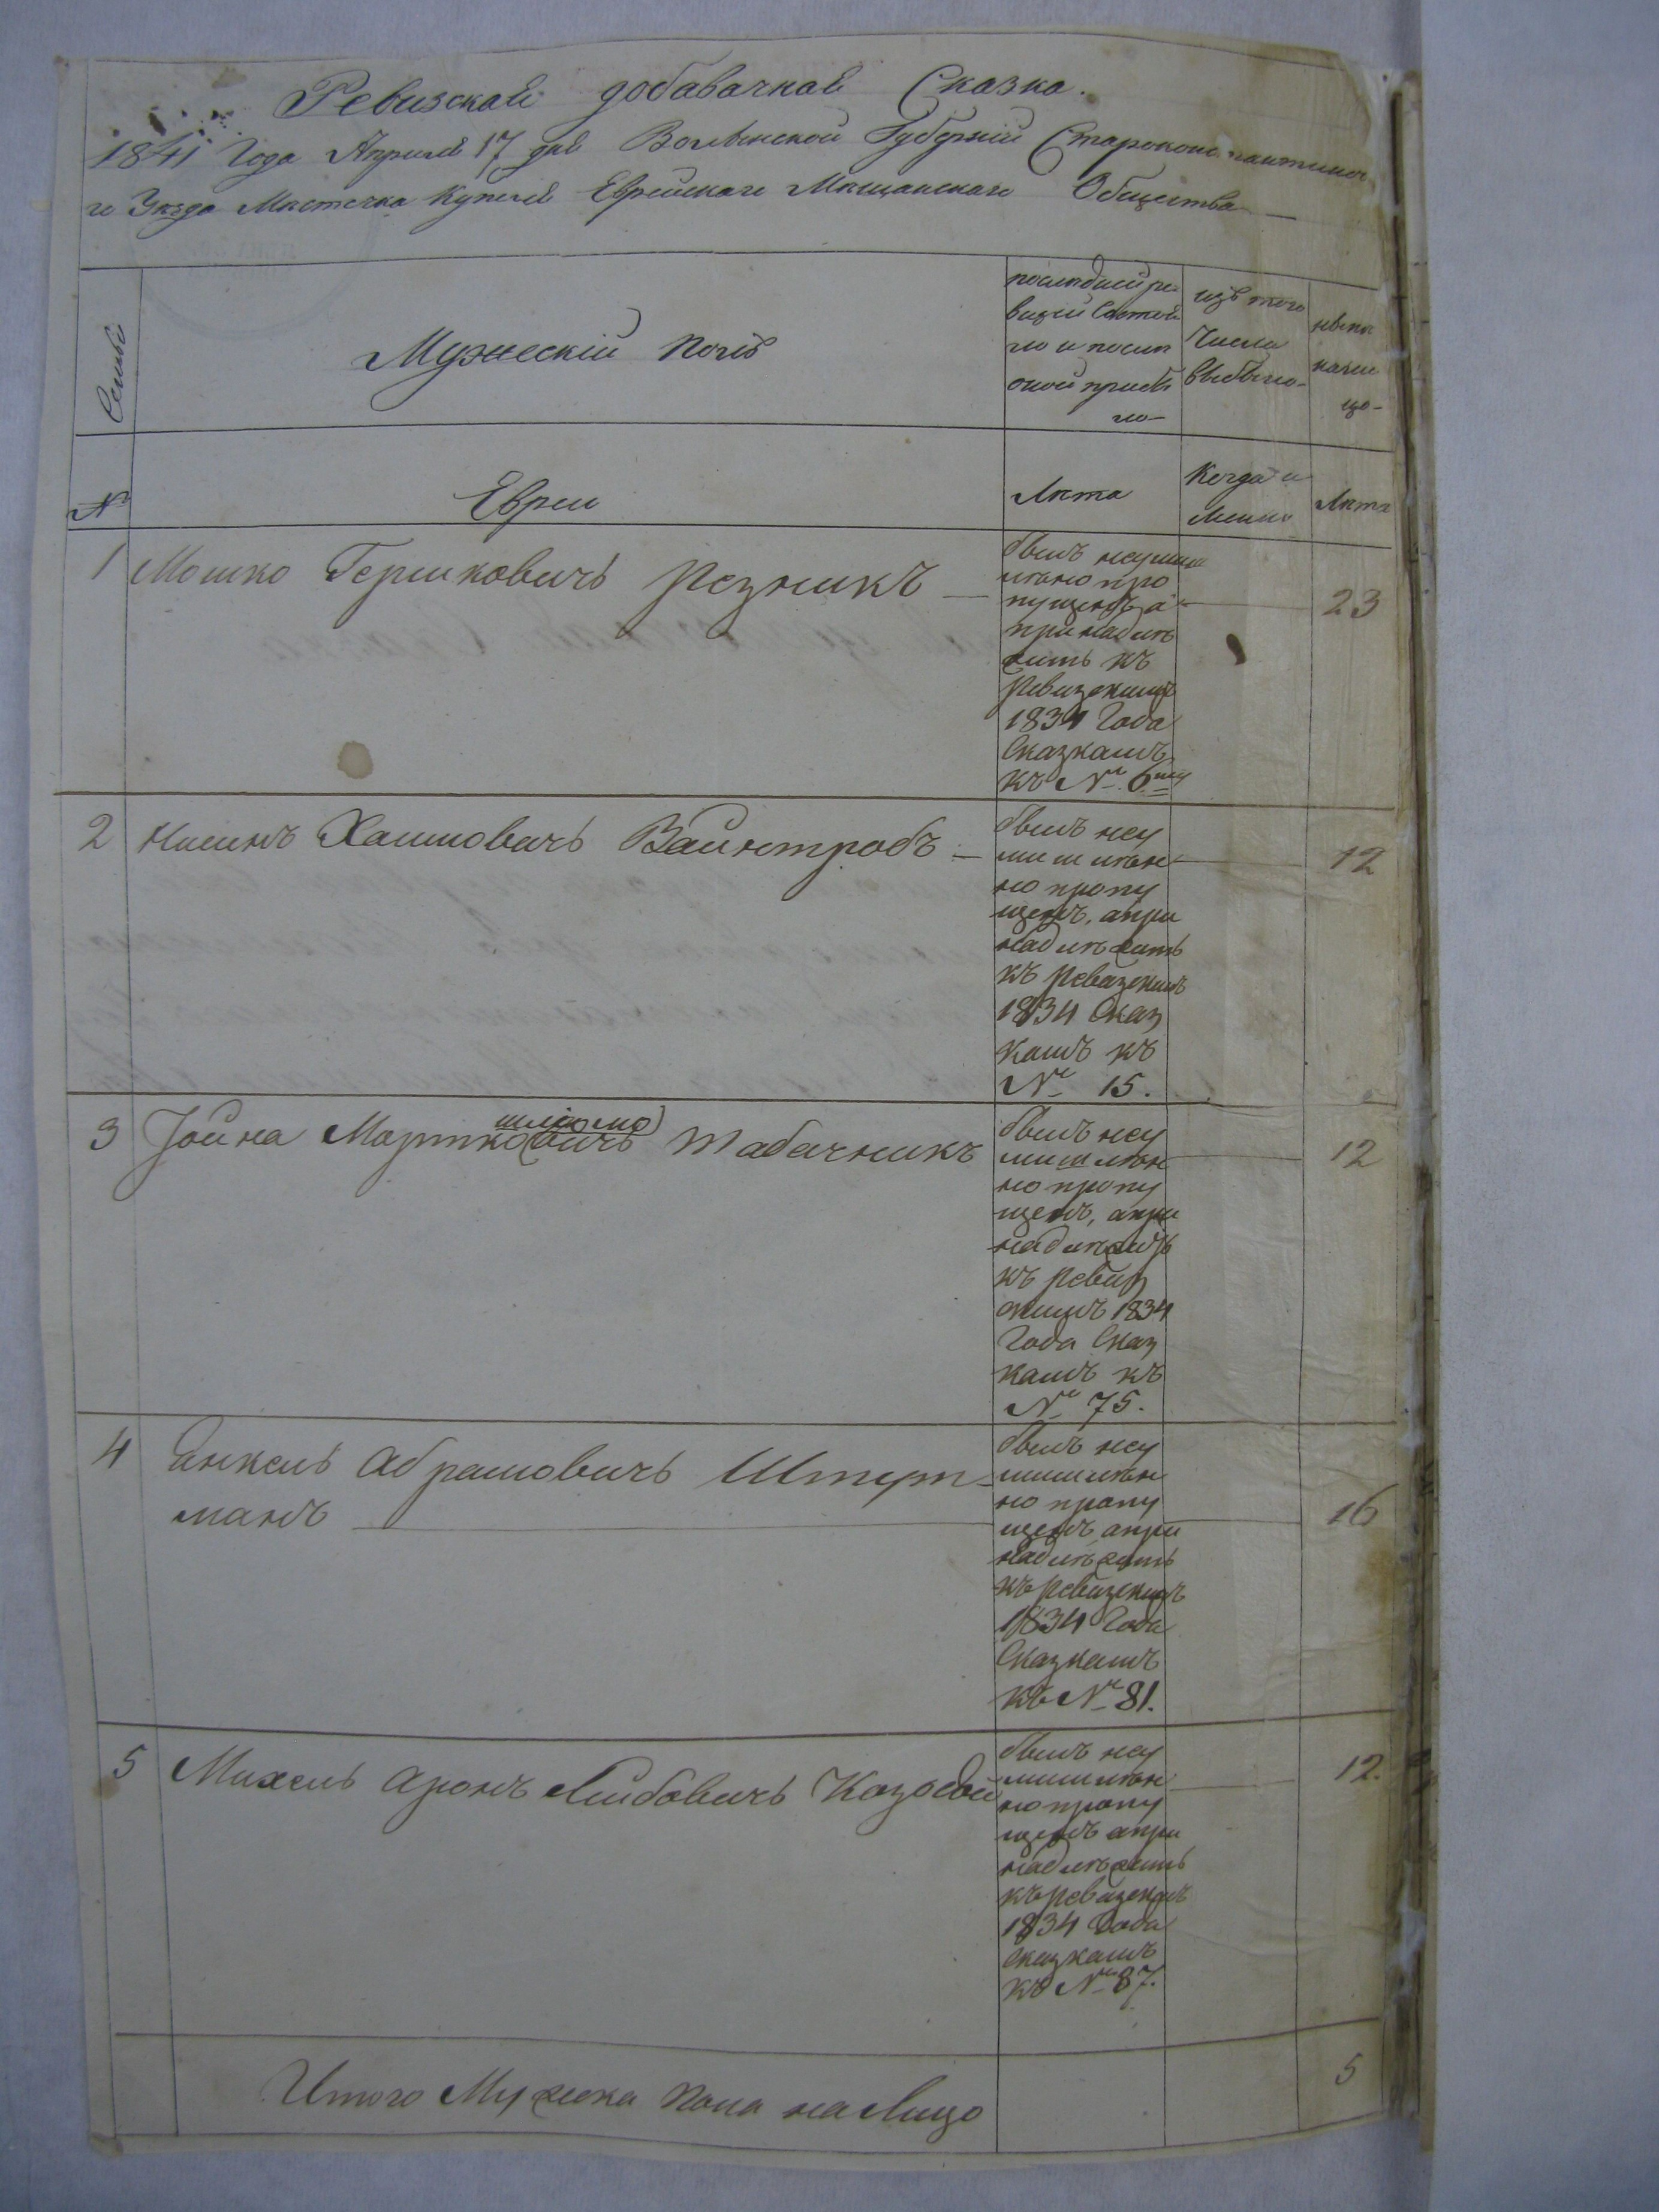 Ревизская добавачная Сказка.
1841 Года Апреля 17 дня Волынской Губерніи Староконстантинов
го Уезда Местечка Купеля Еврейскаго Мещанскаго Общества
Семьи
Мужескій полъ
последней ре
визіи состоя
ло и после
оной прибы
ло
изъ того
Числа
выбыло
ныне
на лицо
№
Евреи
Лета
Когда и
менно
Лета
1 Мошко Гершковичъ Резникъ
былъ неумыш
лено про
пущенъ а
принадле
жить къ
Ревизскимъ
1834 Года
Сказкамъ
къ № 6му
23
2 Нисинъ Хаимовичъ Вайнтробъ
былъ неу
мышлен
но пропу
щенъ, апри
надлежить
къ Ревизскимъ
1834 Сказ
камъ къ
№ 15.
12
шліомо
3 Іойна Мортковичъ Табачникъ
былъ неу
мышлен
но пропу
щенъ, апри
надлежить
къ Ревиз
скимъ 1834
Года Сказ
камъ къ
№ 75.
12
4 Янкель Абрамовичъ Штут-
манъ
былъ неу
мышлен
но пропу
щенъ, апри
надлежить
къ Ревизскимъ
1834 Года
Сказкамъ
къ № 81.
16
5 Михель Аронъ Лейбовичъ Козодой
былъ неу
мышлен
но пропу
щенъ апри
надлежить
къ Ревизскимъ
1834 Года
Сказкамъ
къ № 87.
12.
Итого Мужеска пола на Лицо
5